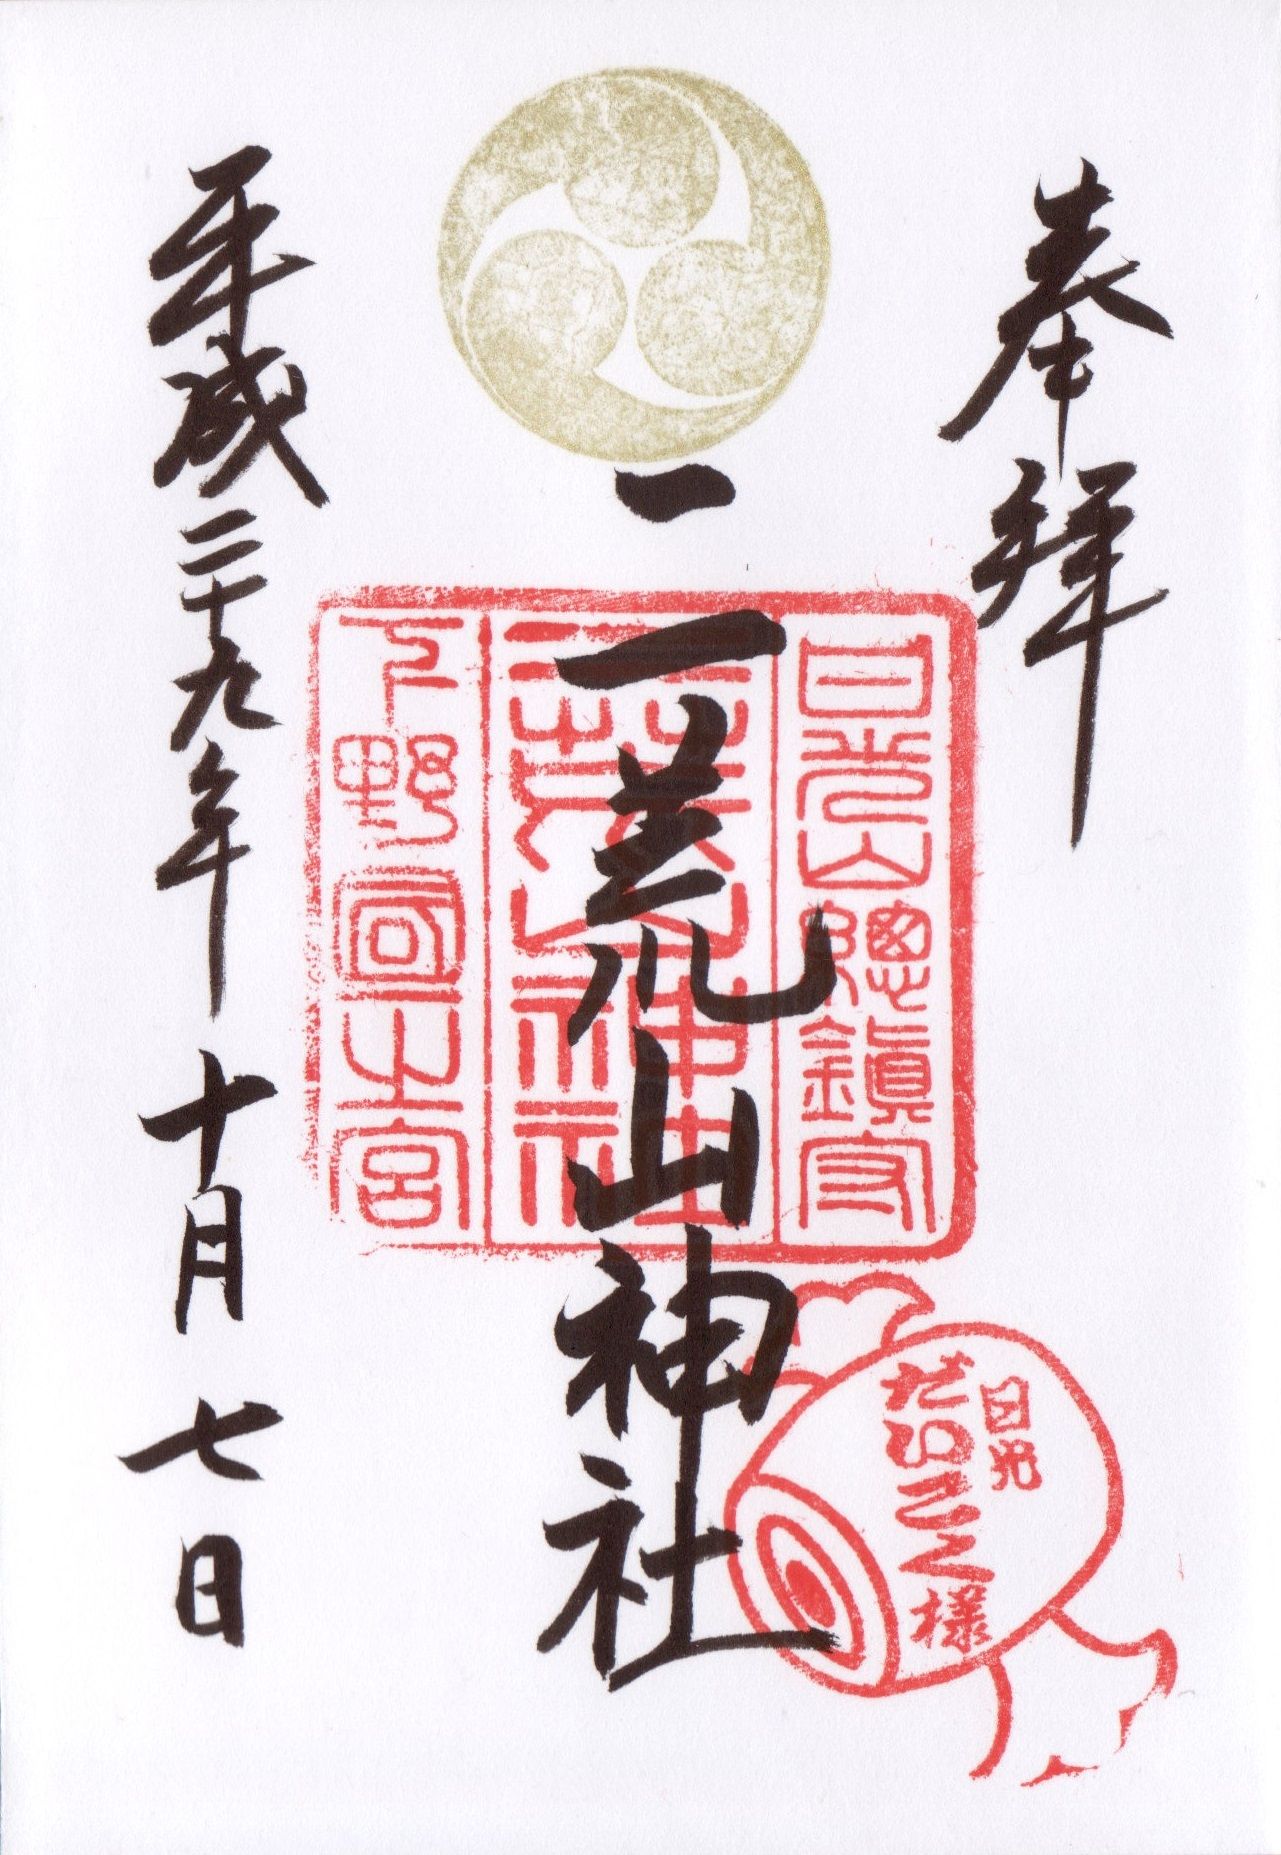 奉拝
二荒山神社
平成二十九年十月七日
日光山總鎮守
二荒山神社
下野國一之宮
日光
だいこく様